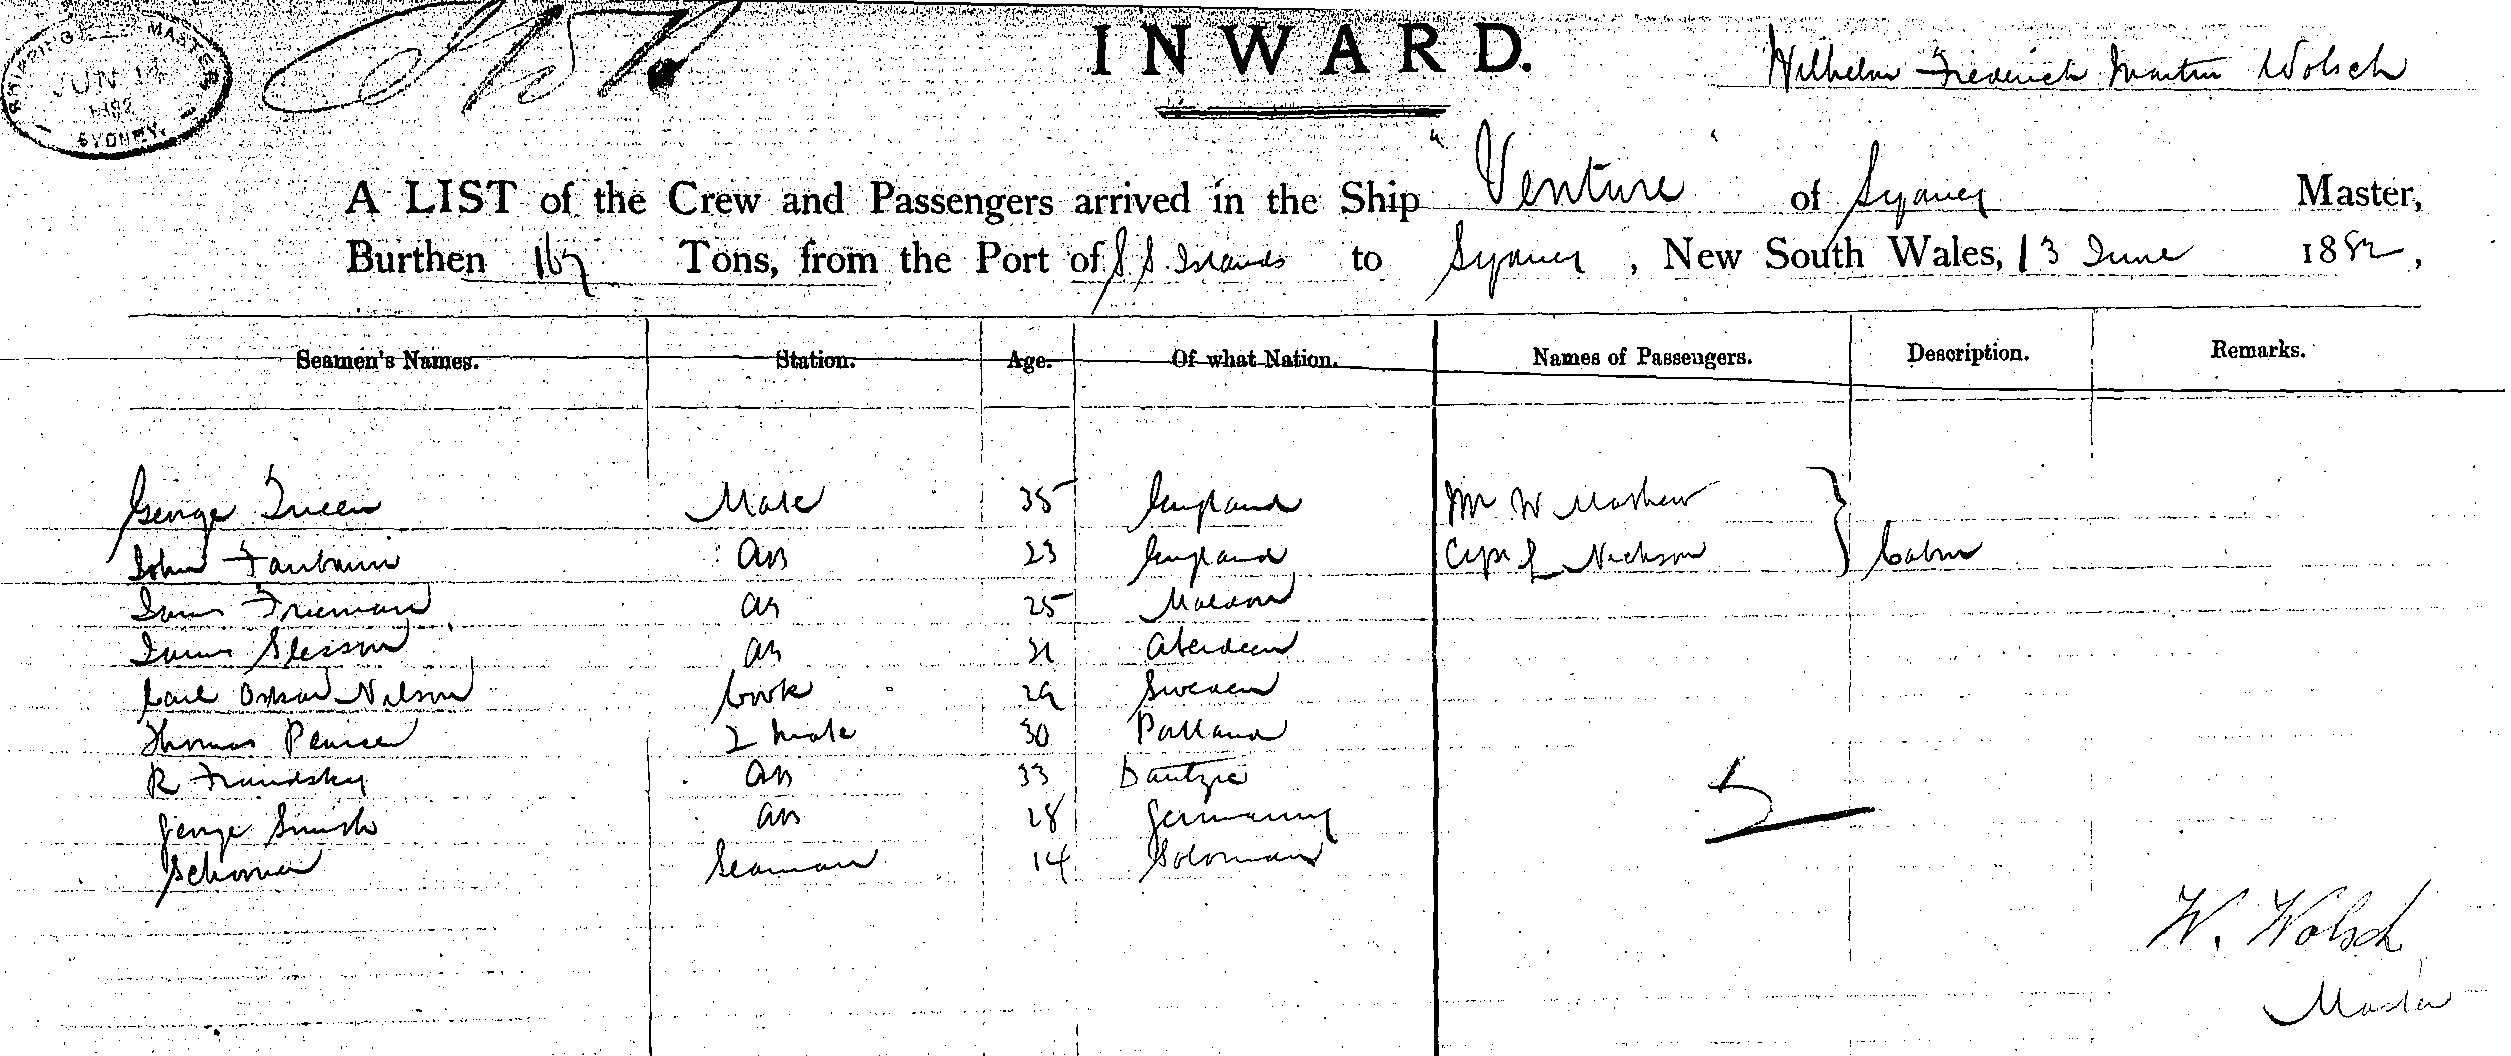 SHIPPING MASTER
JUN 14
1882
SYDNEY.
INWARD.
Wilhelm Frederich Martin Wolsch
A LIST of the Crew and Passengers arrived in the Ship "Venture" of Sydney Master,
Burthen 167 Tons, from the Port of S S Islands to Sydney, New South Wales, 13 June 1882,
Seamen's Names. Station. Age. Of what Nation. Names of Passengers. Description. Remarks.
George Queen Mate 35 England Mr W Mathew
John Fairbairn AB 23 England Capt Nickson Cabin
James Freeman AB 25 Maldon
James Slesson AB 21 Aberdeen
Carl Oskar Nilson Cook 29 Sweden
Thomas Pearce 2 Mate 30 Portland
R Frandsky AB 33 Dantzic
George Smith AB 28 Germany
Schooner Seaman 14 Solomans
W. Wolsch
Master